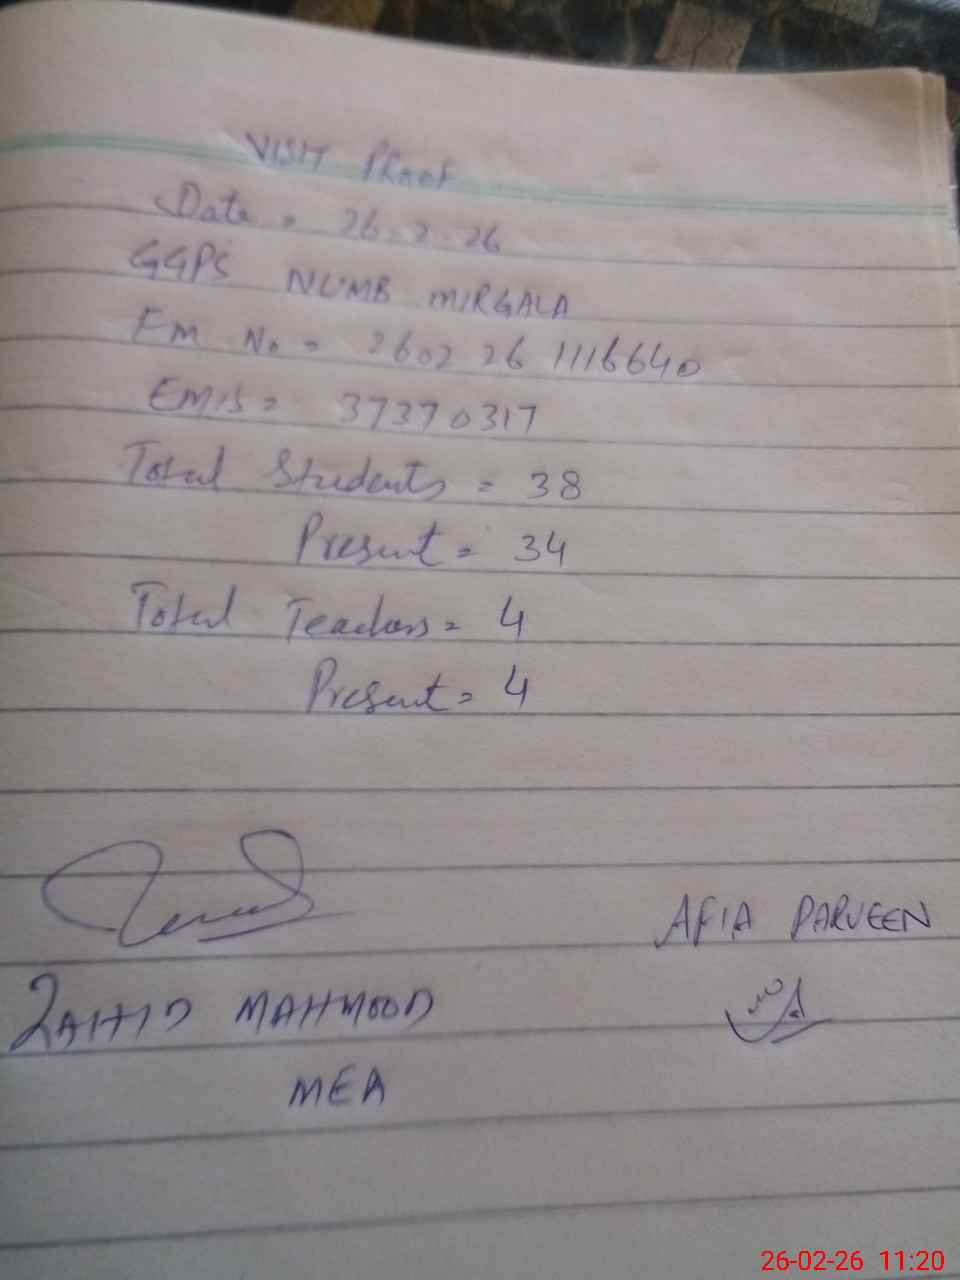 VISIT PROOF
Date = 26.2.26
GGPS NUMB MIRGALA
FM No = 2602 26 1116640
EMIS = 37370317
Total Students = 38
Present = 34
Total Teachers = 4
Present = 4
AFIA PARVEEN
ZAHID MAHMOOD
MEA
26-02-26 11:20